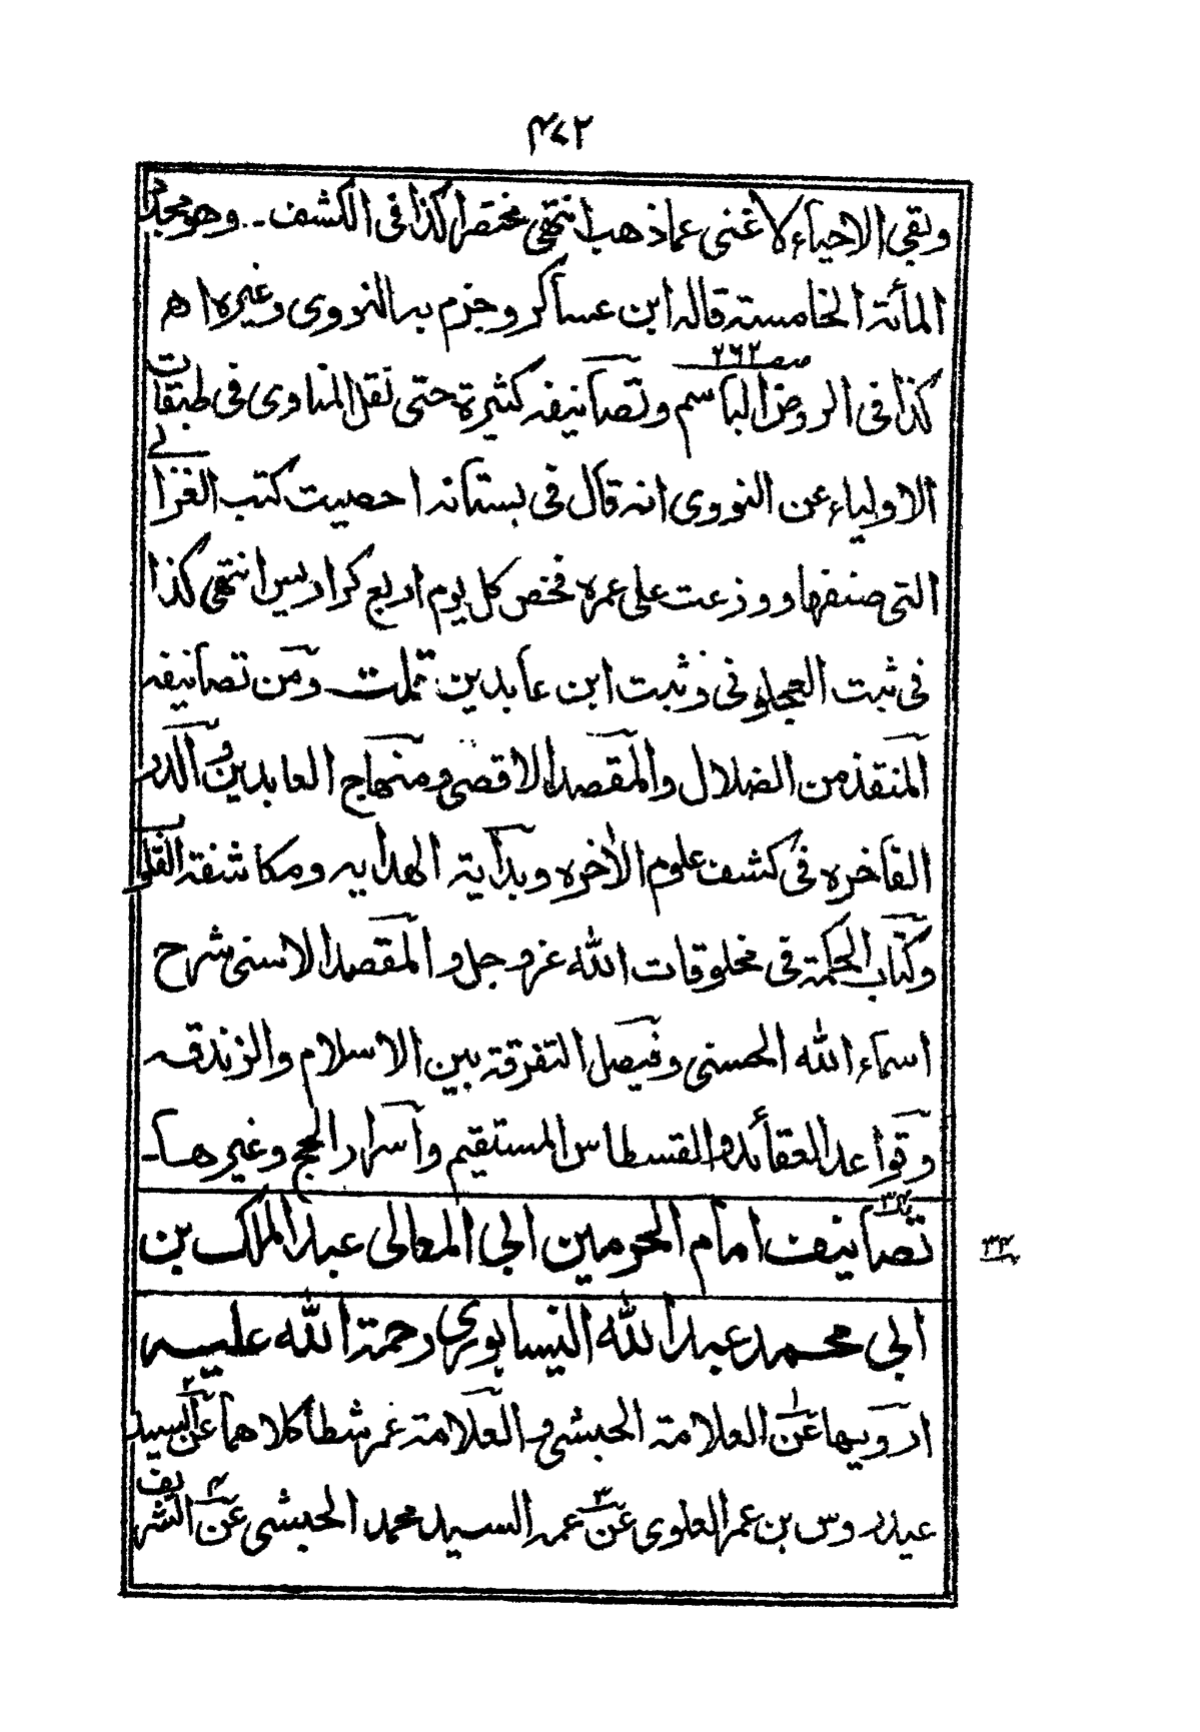 ۴۷۲
وبقي الاحياء لاغنى عما ذهب انتهى مختصرا كذا فى الكشف ـ وهو مجدد
المأئة الخامسة قاله ابن عساكر وجزم به النووى وغيره اھ
كذا فى الروض الباسم صـ ۲۶۲ وتصانيفه كثيرة حتى نقل المناوى فى طبقات
الاولياء عن النووى انه قال فى بستانه احصيت كتب الغزالي
التى صنفها ووزعت على عمره فخص كل يوم اربع كراريس انتهى كذا
فى ثبت العجلونى وثبت ابن عابدين قلت ومن تصانيفه
المنقذ من الضلال والمقصد الاقصى ومنهاج العابدين والدر
الفاخره فى كشف علوم الأخره وبداية الهدايه ومكاشفة القلوب
وكتاب الحكمة فى مخلوقات الله عزوجل والمقصد الاسنى شرح
اسماء الله الحسنى وفيصل التفرقة بين الاسلام والزندقه
وقواعد العقائد والقسطاس المستقيم وأسرار الحج وغيرها ـ
تصانيف امام الحرمين ابي المعالى عبد الملك بن
۳۴
ابي محمد عبد الله النيسابوري رحمة الله عليه
ارويها عن ۱ العلامة الحبشى والعلامة عمر شطا كلاهما عن ۲ السيد
عيدروس بن عمر العلوى عن ۳ عمه السيد محمد الحبشى عن ۴ الشريف